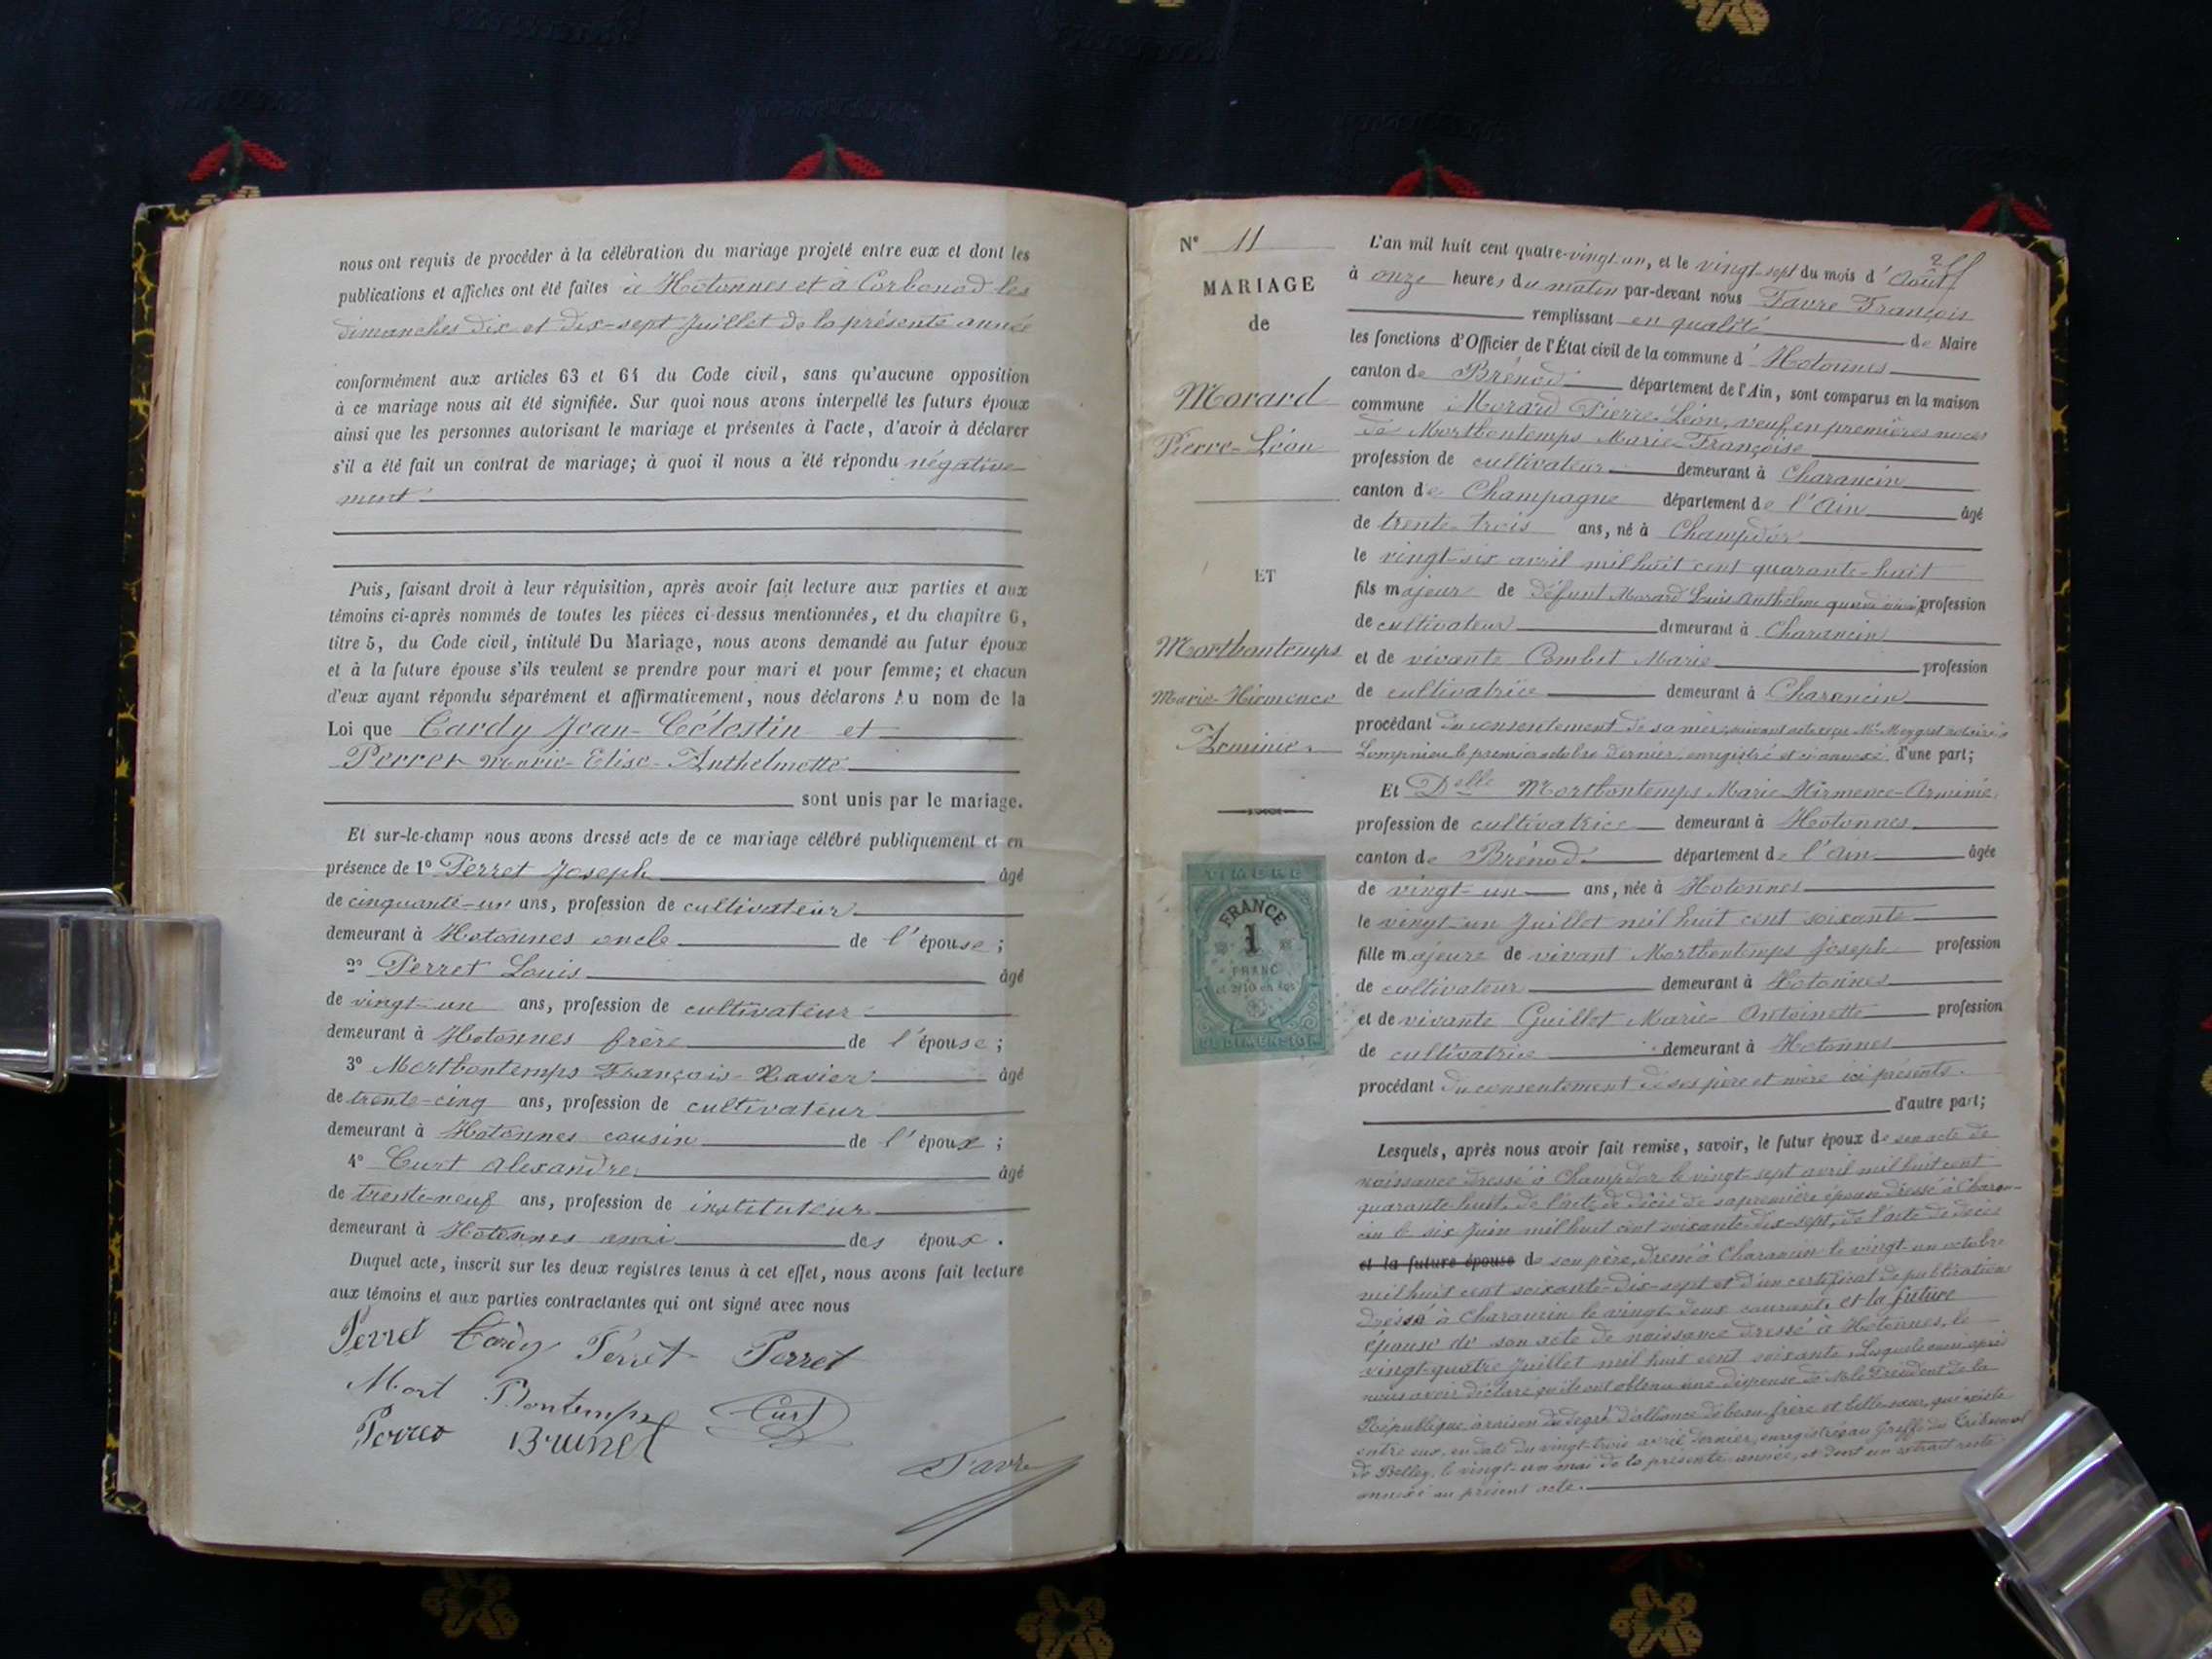 nous ont requis de procéder à la célébration du mariage projeté entre eux et dont les
publications et affiches ont été faites à Hotonnes et à Corbonod les
dimanches dix et dix-sept Juillet de la présente année
conformément aux articles 63 et 64 du Code civil, sans qu'aucune opposition
à ce mariage nous ait été signifiée. Sur quoi nous avons interpellé les futurs époux
ainsi que les personnes autorisant le mariage et présentes à l'acte, d'avoir à déclarer
s'il a été fait un contrat de mariage; à quoi il nous a été répondu négative-
ment.
Puis, faisant droit à leur réquisition, après avoir fait lecture aux parties et aux
témoins ci-après nommés de toutes les pièces ci-dessus mentionnées, et du chapitre 6,
titre 5, du Code civil, intitulé Du Mariage, nous avons demandé au futur époux
et à la future épouse s'ils veulent se prendre pour mari et pour femme; et chacun
d'eux ayant répondu séparément et affirmativement, nous déclarons Au nom de la
Loi que Cardy Jean-Célestin et
Perret Marie-Elise-Anthelmette
sont unis par le mariage.
Et sur-le-champ nous avons dressé acte de ce mariage célébré publiquement et en
présence de 1° Perret Joseph âgé
de cinquante-un ans, profession de cultivateur
demeurant à Hotonnes oncle de l'épouse;
2° Perret Louis âgé
de vingt-un ans, profession de cultivateur
demeurant à Hotonnes frère de l'épouse;
3° Mortbontemps François-Xavier âgé
de trente-cinq ans, profession de cultivateur
demeurant à Hotonnes cousin de l'époux;
4° Curt Alexandre âgé
de trente-neuf ans, profession de instituteur
demeurant à Hotonnes ami des époux.
Duquel acte, inscrit sur les deux registres tenus à cet effet, nous avons fait lecture
aux témoins et aux parties contractantes qui ont signé avec nous
Perret Cardy Perret Perret
Mort Bontemps Curt
Perret Brunet
Favre
N° 11
MARIAGE
de
Morard
Pierre-Léon
ET
Mortbontemps
Marie-Hirmence
Arminie
TIMBRE
FRANCE
1
FRANC
et 2/10 en sus
DE DIMENSION
L'an mil huit cent quatre-vingt-un, et le vingt-sept du mois d'Août
à onze heures du matin par-devant nous Favre François
remplissant en qualité de Maire
les fonctions d'Officier de l'État civil de la commune d'Hotonnes
canton de Brénod département de l'Ain, sont comparus en la maison
commune Morard Pierre-Léon, veuf en premières noces
de Mortbontemps Marie-Françoise
profession de cultivateur demeurant à Charancin
canton de Champagne département de l'Ain âgé
de trente-trois ans, né à Champdor
le vingt-six avril mil huit cent quarante-huit
fils majeur de défunt Morard Louis Anthelme quand vivait profession
de cultivateur demeurant à Charancin
et de vivante Combet Marie profession
de cultivatrice demeurant à Charancin
procédant du consentement de sa mère, suivant acte reçu Me notaire à
Lompnieu le premier octobre dernier, enregistré et ci-annexé, d'une part;
Et Delle Mortbontemps Marie-Hirmence-Arminie
profession de cultivatrice demeurant à Hotonnes
canton de Brénod département de l'Ain âgée
de vingt-un ans, née à Hotonnes
le vingt-un Juillet mil huit cent soixante
fille majeure de vivant Mortbontemps Joseph profession
de cultivateur demeurant à Hotonnes
et de vivante Guillot Marie-Antoinette profession
de cultivatrice demeurant à Hotonnes
procédant du consentement de ses père et mère ici présents.
d'autre part;
Lesquels, après nous avoir fait remise, savoir, le futur époux de son acte de
naissance dressé à Champdor le vingt-sept avril mil huit cent
quarante-huit, de l'acte de décès de sa première épouse dressé à Charan-
cin le six Juin mil huit cent soixante-dix-sept, de l'acte de décès
et la future épouse de son père, dressé à Charancin le vingt-un octobre
mil huit cent soixante-dix-sept et d'un certificat de publication
dressé à Charancin le vingt-deux courant, et la future
épouse de son acte de naissance dressé à Hotonnes, le
vingt-quatre Juillet mil huit cent soixante. Lesquels aussi après
nous avoir déclaré qu'ils ont obtenu une dispense de M. le Président de la
République, à raison du degré d'alliance de beau-frère et belle-sœur, qui existe
entre eux, en date du vingt-trois avril dernier, enregistrée au Greffe du Tribunal
de Belley, le vingt-un mai de la présente année, et dont un extrait reste
annexé au présent acte.